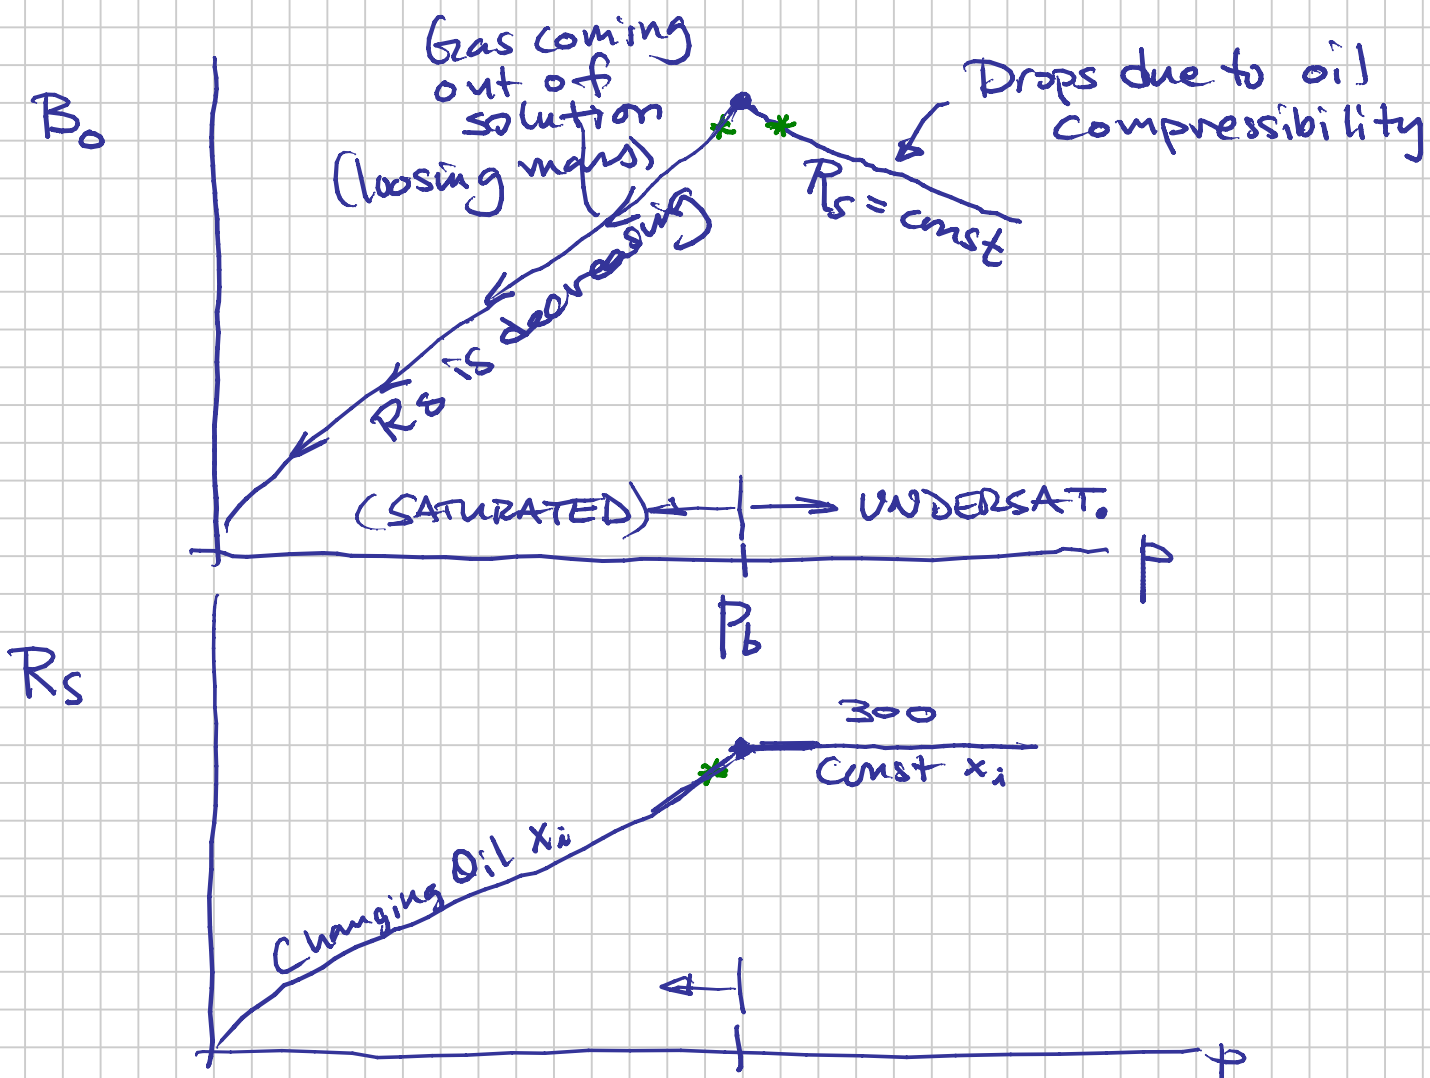 Bo
Gas coming
out of
solution
(loosing mass)
Drops due to oil
compressibility
Rs = const
Rs is decreasing
(SATURATED)
UNDERSAT.
P
Pb
Rs
300
Const xi
Changing Oil xi
P